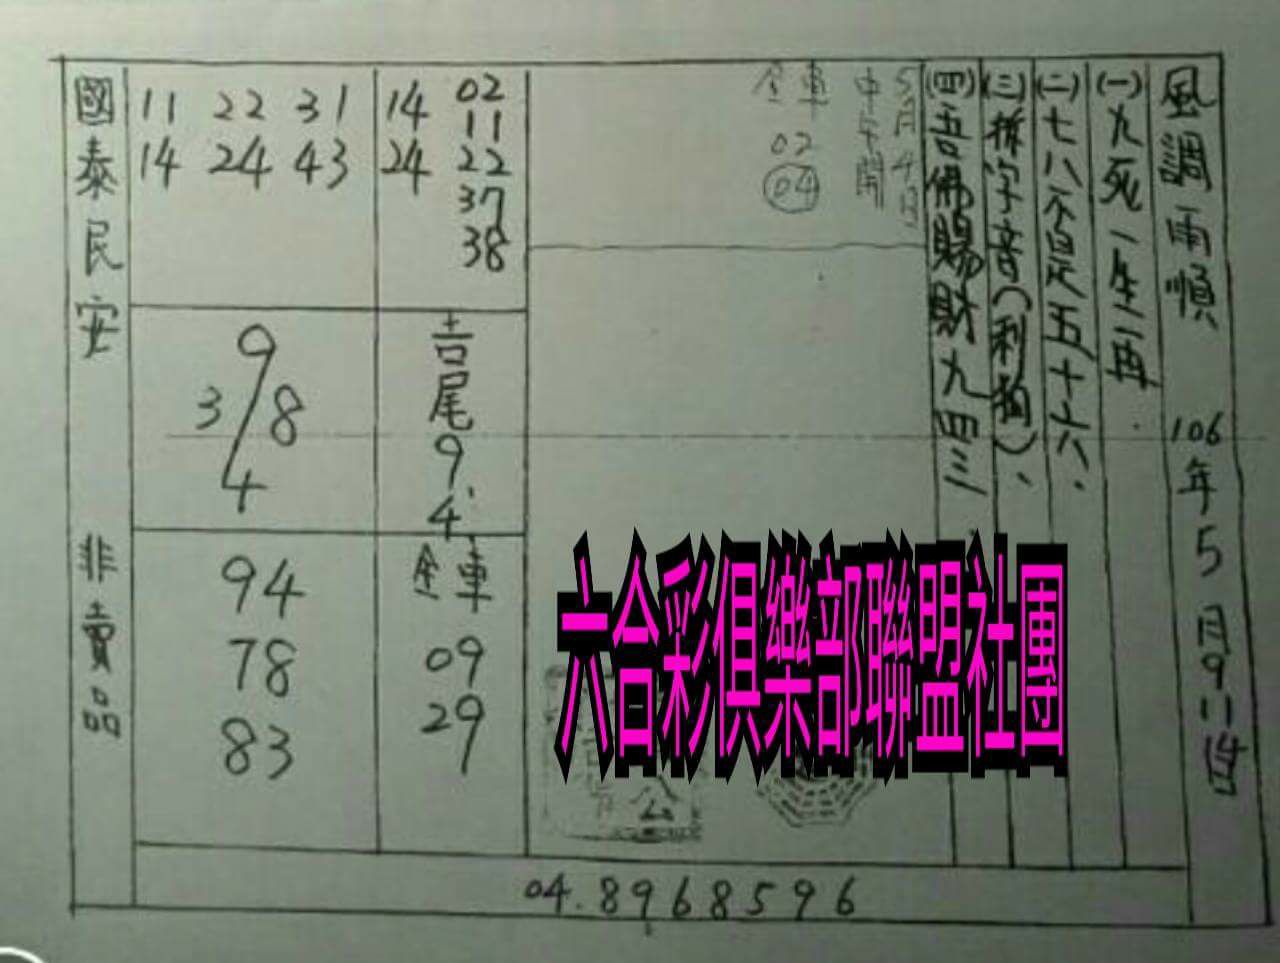 風調雨順 106年5月9 11 14日
(一)九死一生一再.
(二)七八不是五十六、
(三)拆字音(利 )、
(四)五佛賜財九四三
5月4日
中午開
全車
02
04
02
14 11
24 22
37
38
11 22 31
14 24 43
吉尾
9.
4.
9
3/8
4
全車
09
29
94
78
83
國泰民安 非賣品
六合彩俱樂部聯盟社團
公
04.8968596